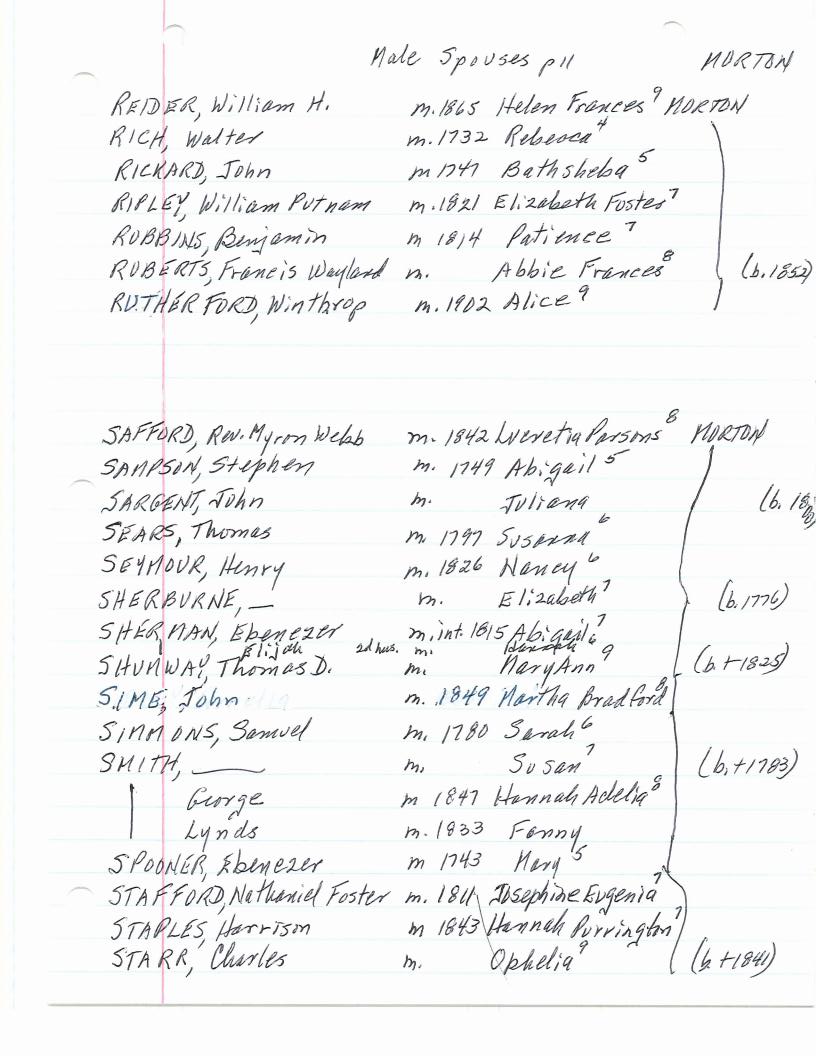 Male Spouses p11 MORTON
REIDER, William H. m. 1865 Helen Frances⁹ MORTON
RICH, Walter m. 1732 Rebecca⁴
RICKARD, John m 1747 Bathsheba⁵
RIPLEY, William Putnam m. 1821 Elizabeth Foster⁷
ROBBINS, Benjamin m 1814 Patience⁷
ROBERTS, Francis Wayland m. Abbie Frances⁸ (b. 1852)
RUTHERFORD, Winthrop m. 1902 Alice⁹
SAFFORD, Rev. Myron Webb m. 1842 Lucretia Parsons⁸ MORTON
SAMPSON, Stephen m. 1749 Abigail⁵
SARGENT, John m. Juliana (b. 18
SEARS, Thomas m. 1797 Susanna⁶
SEYMOUR, Henry m. 1826 Nancy⁶
SHERBURNE, — m. Elizabeth⁷ (b. 1776)
SHERMAN, Ebenezer m. int. 1815 Abigail⁷
Elijah 2d hus. m. Hannah⁶
SHUMWAY, Thomas D. m. Mary Ann⁹ (b. + 1825)
SIME, John m. 1849 Martha Bradford⁸
SIMMONS, Samuel m. 1780 Sarah⁶
SMITH, — m. Susan⁷ (b. + 1783)
George m 1847 Hannah Adelia⁸
Lynds m. 1833 Fanny
SPOONER, Ebenezer m 1743 Mary⁵
STAFFORD, Nathaniel Foster m. 18 Josephine Eugenia⁷
STAPLES, Harrison m 1843 Hannah Purrington⁷
STARR, Charles m. Ophelia⁹ (b. + 1841)